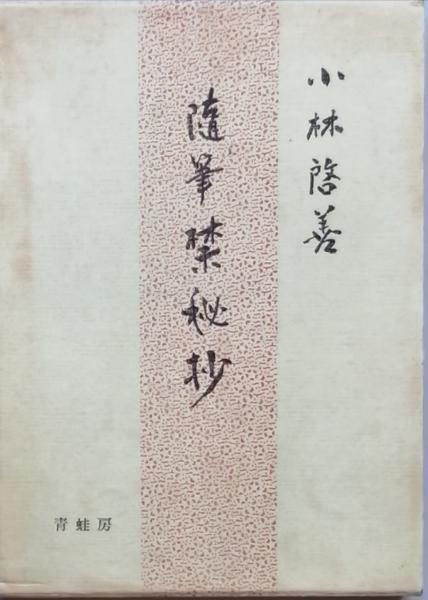 小林啓善
隨筆禁秘抄
青蛙房